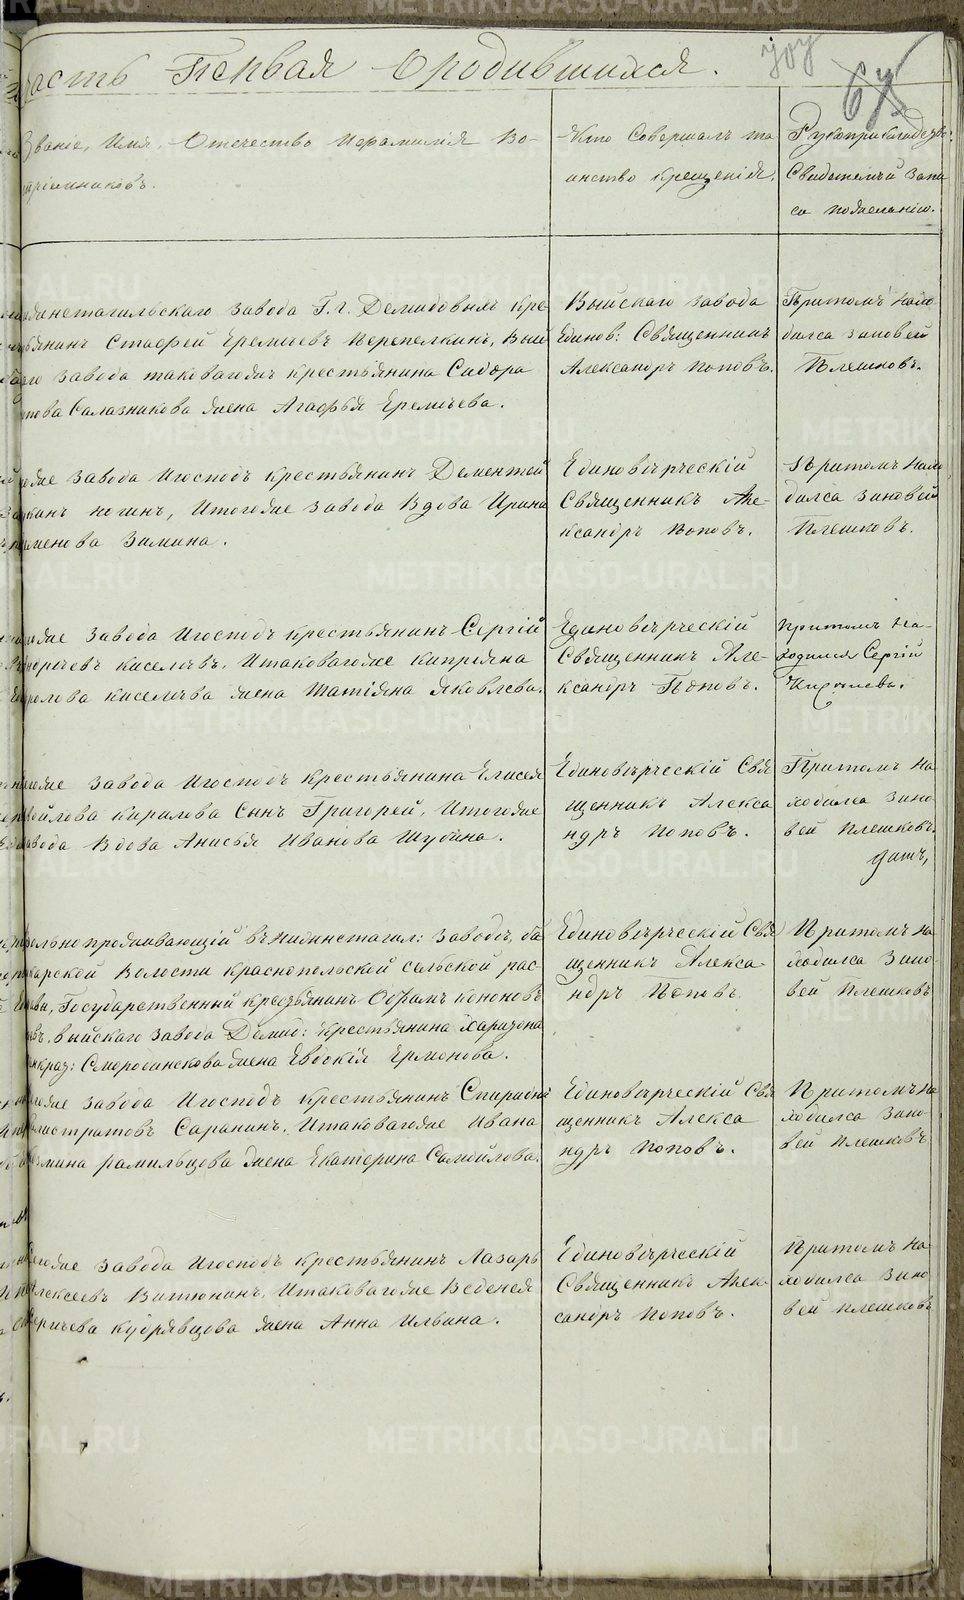 часть Первая О родившихся.
Званіе, Имя, Отечество И фамилія Во-
спріемниковъ.
Кто Совершалъ та
инство крещенія.
Рукоприкладство
Свидетелей запи
си по желанію.
Нижнетагильскаго завода Г.г. Демидовымъ кре
стьянинъ Стафей Еремеевъ Перепелкинъ, Вый
скаго завода таковагожъ крестьянина Сидора
Салазникова жена Агафья Еремеева.
Выйскаго завода
Единов: Священникъ
Александръ Поповъ.
Притомъ нахо
дилса Зиновей
Плешковъ.
завода И господъ крестьянинъ Дементей
ногинъ, И тогоже завода Вдова Ирина
Зимина.
Единоверческій
Священникъ Але-
ксандръ Поповъ.
Притомъ нахо
дилса Зиновей
Плешковъ.
завода И господъ крестьянинъ Сергій
киселевъ, И таковагоже Кипріяна
киселева жена Татіяна Яковлева.
Единоверческій
Священникъ Але-
ксандръ Поповъ.
Притомъ На-
ходился Сергій
завода И господъ крестьянина Елисея
кирилова Сынъ Григорей, И тогоже
завода Вдова Анисья Иванова Шубина.
Единоверческій Свя
щенникъ Алекса
ндръ Поповъ.
Притомъ На
ходилса Зино
вей Плешковъ.
проживающій въ Нижнетагил: заводе,
Волости краснопольской сельской рас-
правы, Государственный крестьянинъ Ефимъ кононовъ
выйскаго завода Демид: крестьянина Харитона
Панкрат: Смородинскова жена Евдокія Ермонова.
Единоверческій Свя
щенникъ Алекса-
ндръ Поповъ.
Притомъ На
ходилса Зино-
вей Плешковъ
завода И господъ крестьянинъ Спиридонъ
Саранинъ, И таковагоже Ивана
жена Екатерина Самойлова.
Единоверческій Свя
щенникъ Алекса
ндръ Поповъ.
Притомъ На
ходилса Зино
вей Плешковъ
завода И господъ крестьянинъ Лазарь
Алексеевъ Витюнинъ, И таковагоже Веденея
кудрявцова жена Анна Ильина.
Единоверческій
Священникъ Алек-
сандръ Поповъ.
Притомъ На
ходилса Зино
вей Плешковъ
METRIKI.GASO-URAL.RU